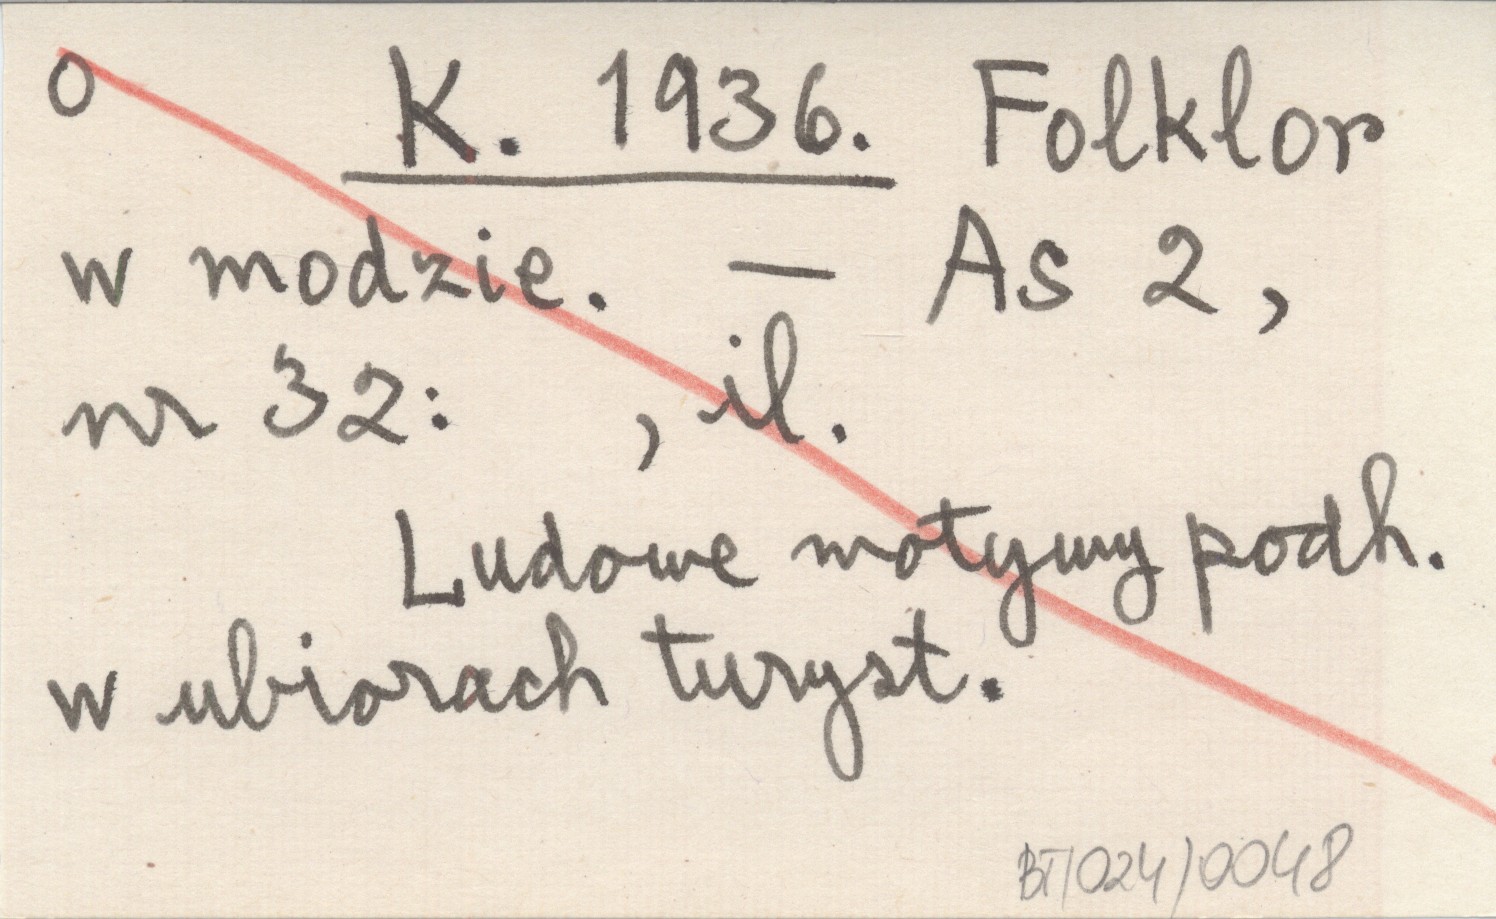 O K. 1936. Folklor
w modzie. — As 2,
nr 32: , il.
Ludowe motywy podh.
w ubiorach turyst.
BT/024/0048